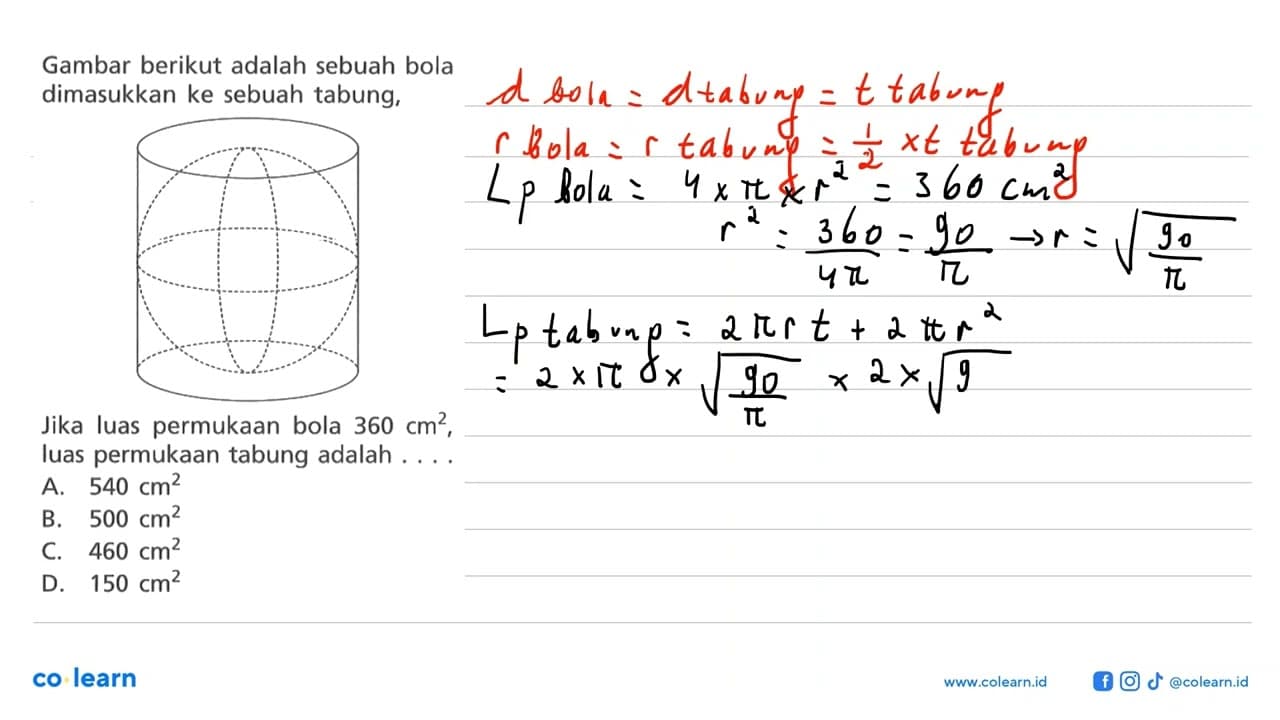 Gambar berikut adalah sebuah bola
dimasukkan ke sebuah tabung,
Jika luas permukaan bola 360 cm²,
luas permukaan tabung adalah . . . .
A. 540 cm²
B. 500 cm²
C. 460 cm²
D. 150 cm²
d bola = d tabung = t tabung
r Bola = r tabung = 1/2 x t tabung
Lp Bola = 4 x π x r² = 360 cm²
r² = 360/4π = 90/π → r = √(90/π)
Lp tabung = 2πr t + 2πr²
= 2 x π x √(90/π) x 2 x √9
co learn
www.colearn.id
@colearn.id